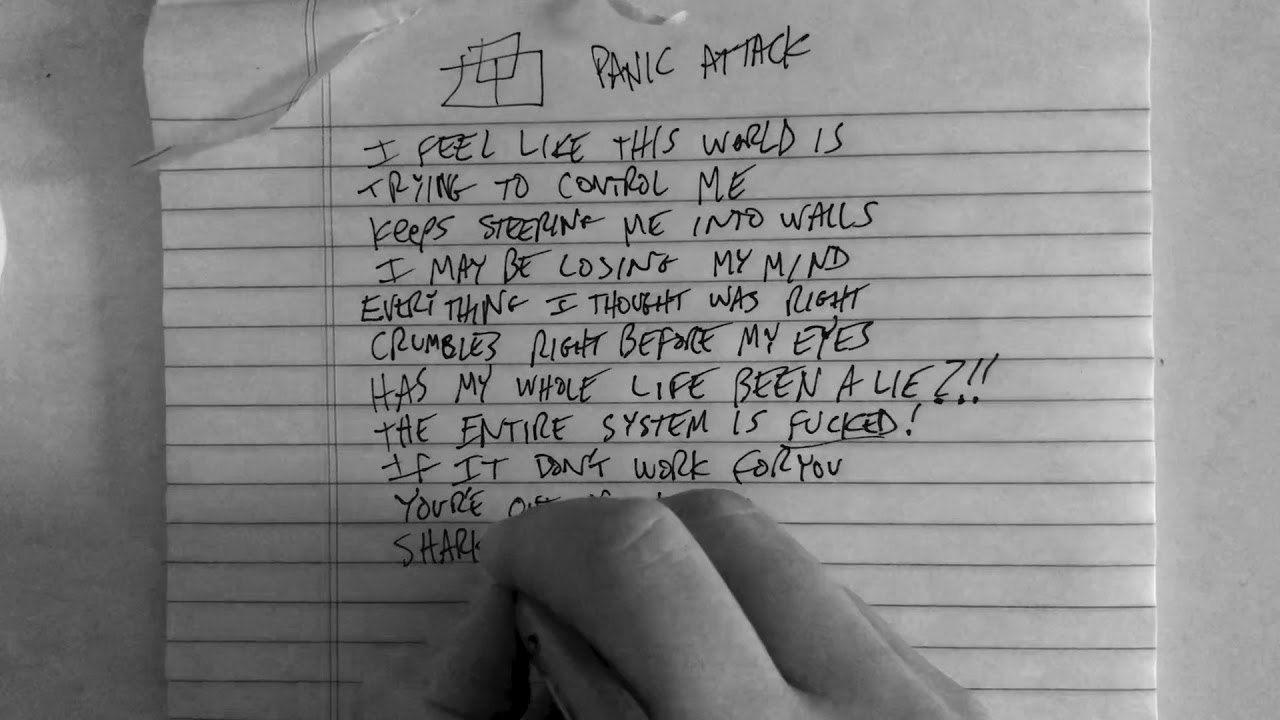 PANIC ATTACK
I FEEL LIKE THIS WORLD IS
TRYING TO CONTROL ME
KEEPS STEERING ME INTO WALLS
I MAY BE LOSING MY MIND
EVERYTHING I THOUGHT WAS RIGHT
CRUMBLES RIGHT BEFORE MY EYES
HAS MY WHOLE LIFE BEEN A LIE?!!
THE ENTIRE SYSTEM IS FUCKED!
IF IT DON'T WORK FOR YOU
YOU'RE